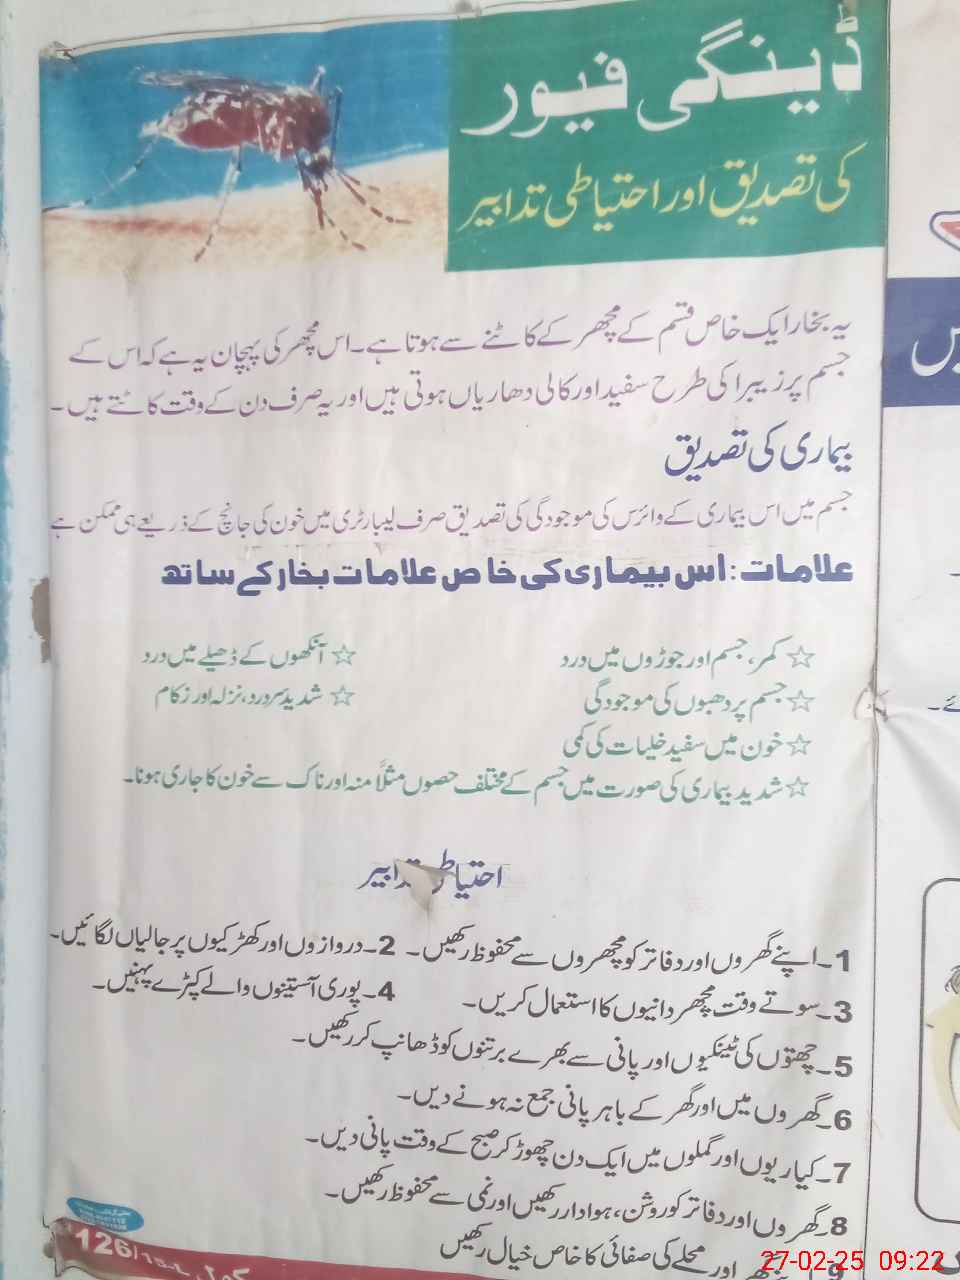 ڈینگی فیور
کی تصدیق اور احتیاطی تدابیر
یہ بخار ایک خاص قسم کے مچھر کے کاٹنے سے ہوتا ہے۔ اس مچھر کی پہچان یہ ہے کہ اس کے
جسم پر زیبرا کی طرح سفید اور کالی دھاریاں ہوتی ہیں اور یہ صرف دن کے وقت کاٹتے ہیں۔
بیماری کی تصدیق
جسم میں اس بیماری کے وائرس کی موجودگی کی تصدیق صرف لیبارٹری میں خون کی جانچ کے ذریعے ہی ممکن ہے
علامات: اس بیماری کی خاص علامات بخار کے ساتھ
☆ کمر، جسم اور جوڑوں میں درد ☆ آنکھوں کے ڈھیلے میں درد
☆ جسم پر دھبوں کی موجودگی ☆ شدید سردرد، نزلہ اور زکام
☆ خون میں سفید خلیات کی کمی
☆ شدید بیماری کی صورت میں جسم کے مختلف حصوں مثلاً منہ اور ناک سے خون کا جاری ہونا۔
احتیاطی تدابیر
1۔ اپنے گھروں اور دفاتر کو مچھروں سے محفوظ رکھیں۔ 2۔ دروازوں اور کھڑکیوں پر جالیاں لگائیں۔
3۔ سوتے وقت مچھر دانیوں کا استعمال کریں۔ 4۔ پوری آستینوں والے کپڑے پہنیں۔
5۔ چھتوں کی ٹینکیوں اور پانی سے بھرے برتنوں کو ڈھانپ کر رکھیں۔
6۔ گھروں میں اور گھر کے باہر پانی جمع نہ ہونے دیں۔
7۔ کیاریوں اور گملوں میں ایک دن چھوڑ کر صبح کے وقت پانی دیں۔
8۔ گھروں اور دفاتر کو روشن، ہوادار رکھیں اور نمی سے محفوظ رکھیں۔
9۔ اور محلے کی صفائی کا خاص خیال رکھیں
126/15-L
27-02-25 09:22